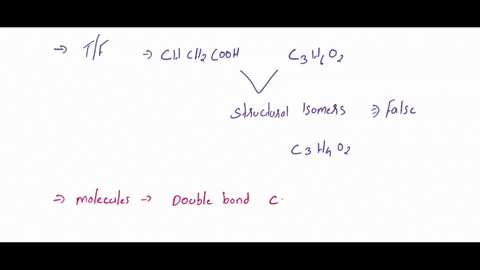 → T/F → CH CH2 COOH C3H6O2
Structural Isomers ⇒ False
C3H4O2
→ molecules → Double bond C